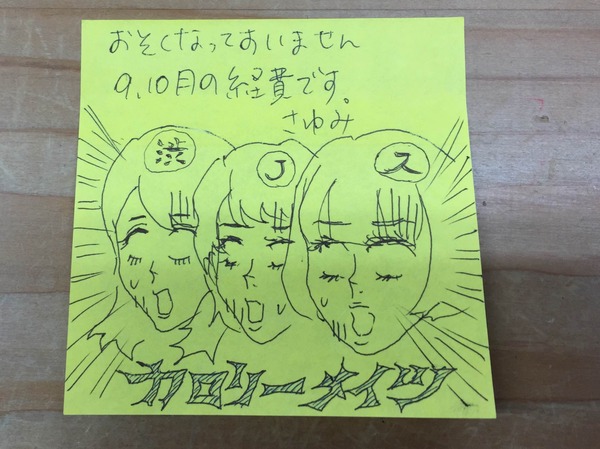 おそくなってすいません
9,10月の経費です。
さゆみ
渋 J ス
カロリーメイツ